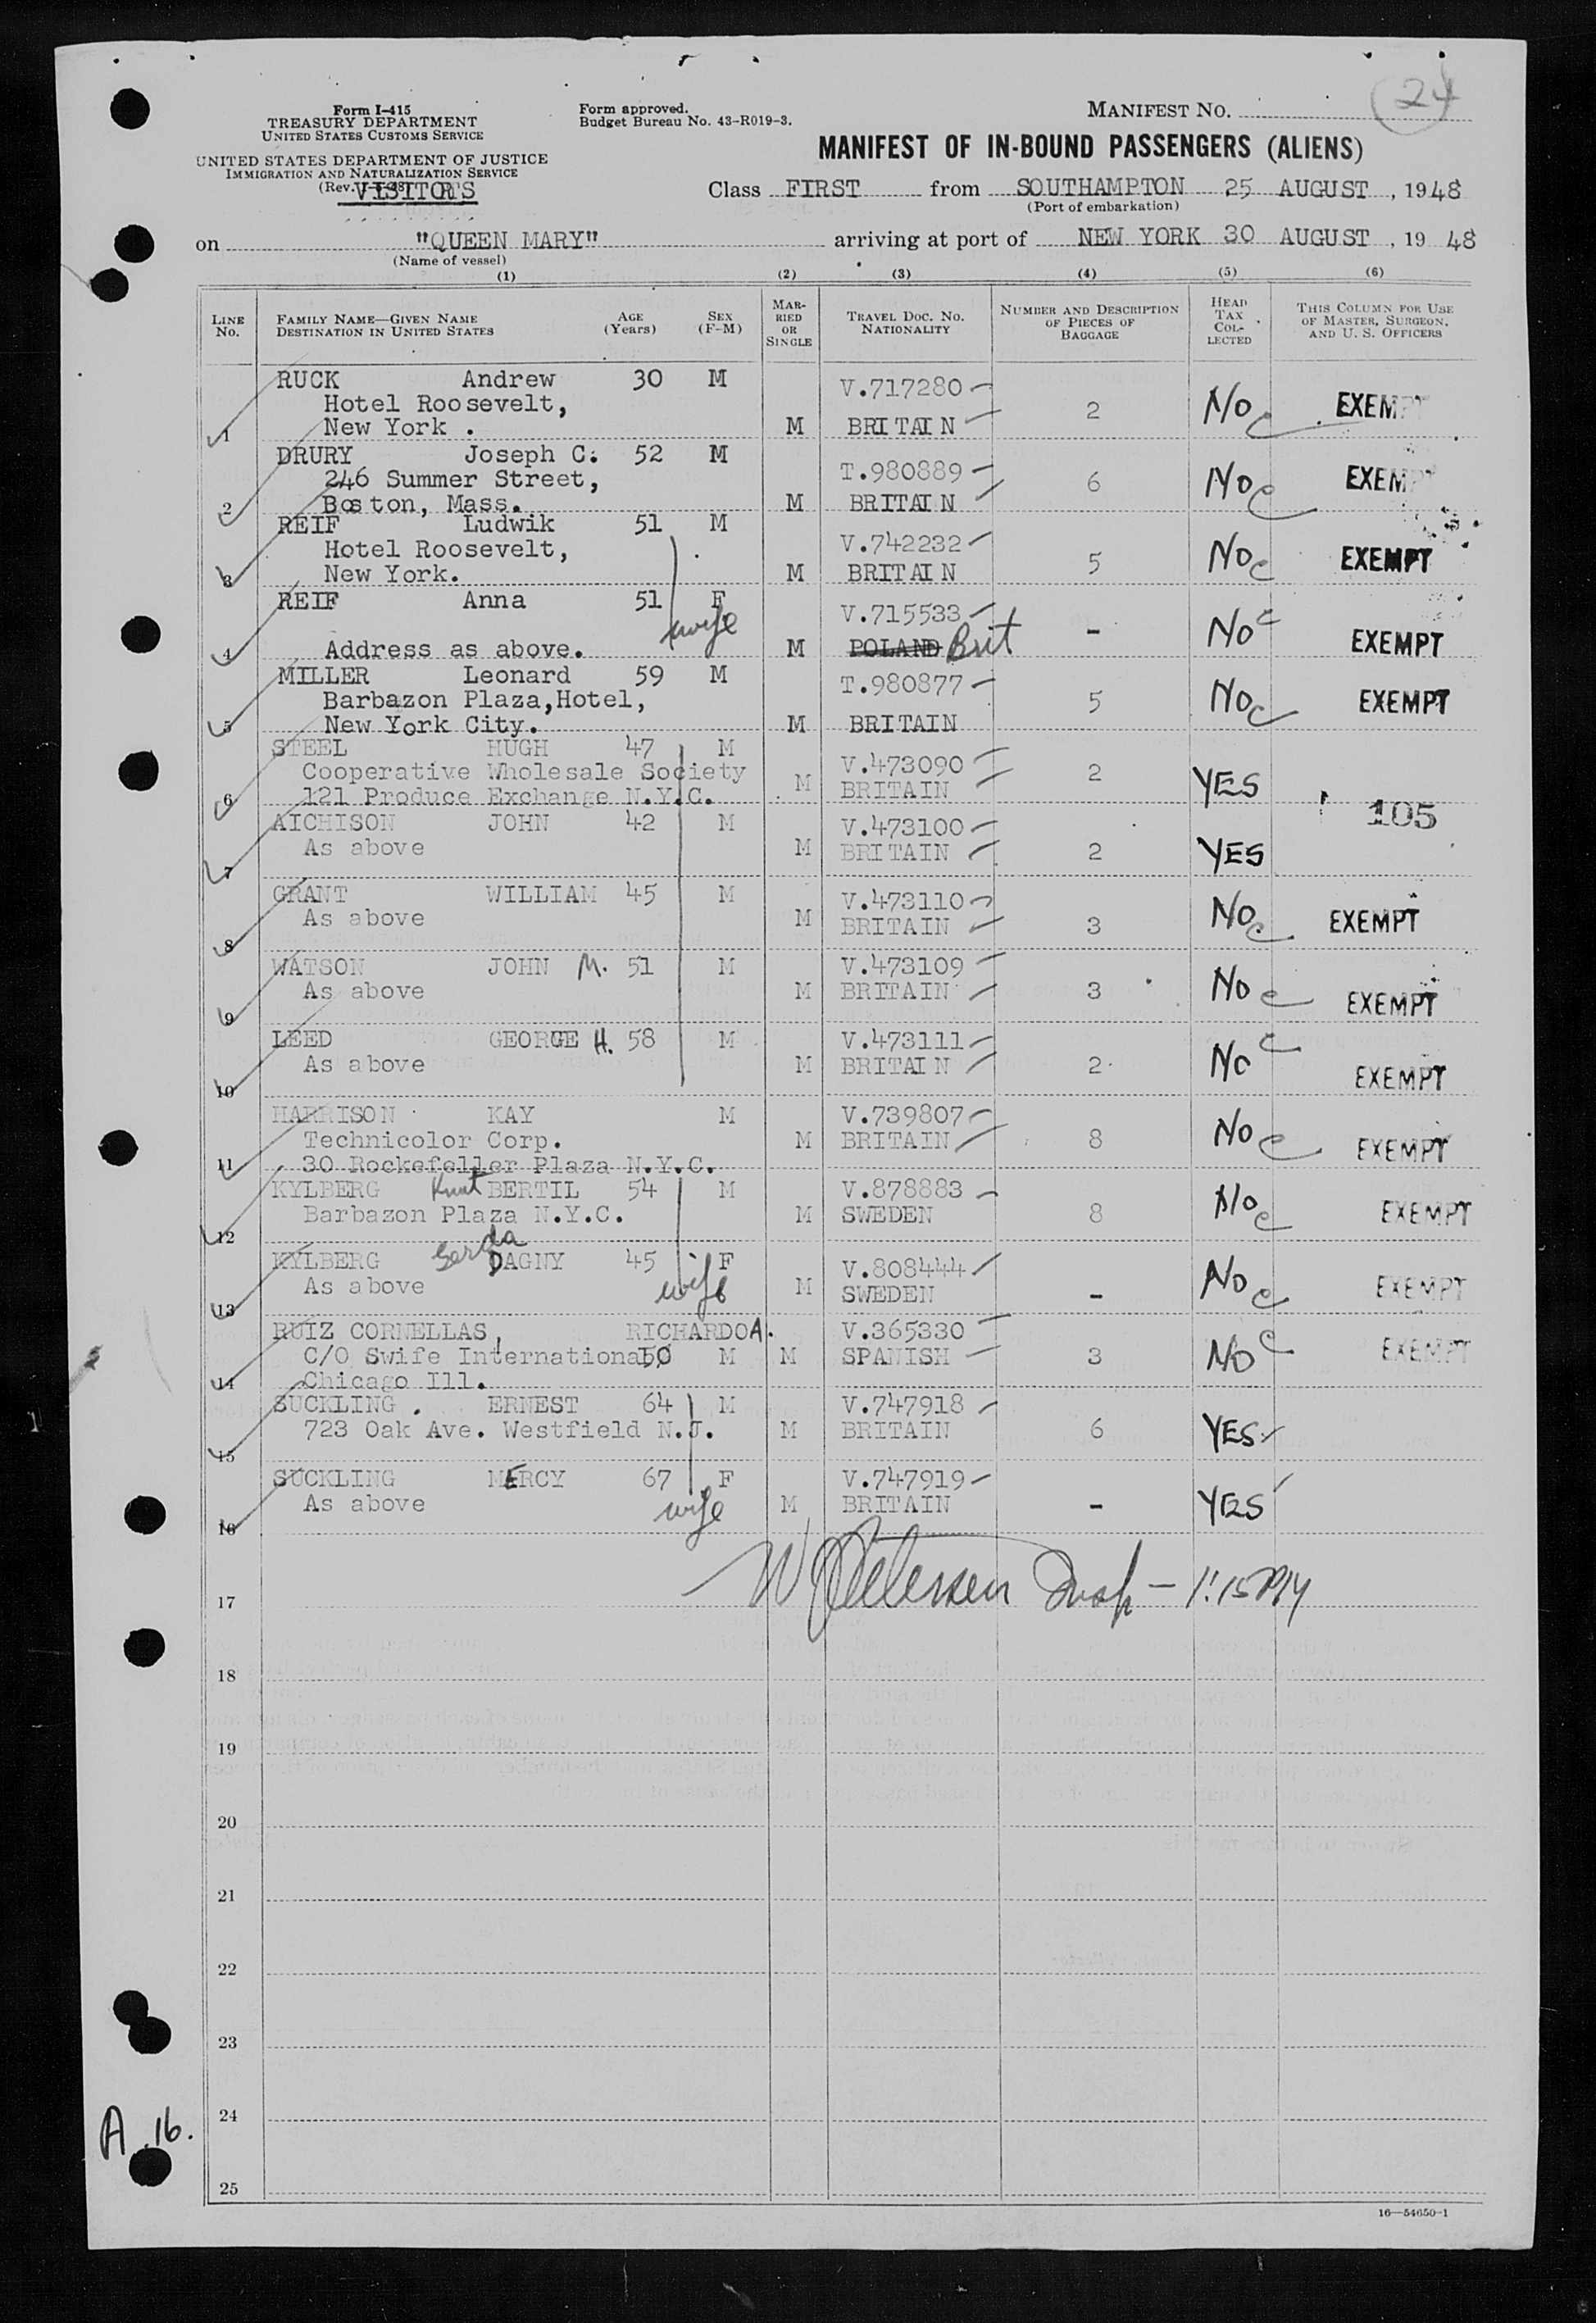 24
Form I-415
TREASURY DEPARTMENT
UNITED STATES CUSTOMS SERVICE
UNITED STATES DEPARTMENT OF JUSTICE
IMMIGRATION AND NATURALIZATION SERVICE
(Rev.
VISITORS
Form approved.
Budget Bureau No. 43-R019-3.
MANIFEST NO.
MANIFEST OF IN-BOUND PASSENGERS (ALIENS)
Class FIRST from SOUTHAMPTON 25 AUGUST, 1948
(Port of embarkation)
on "QUEEN MARY" arriving at port of NEW YORK 30 AUGUST, 1948
(Name of vessel)
(1) (2) (3) (4) (5) (6)
LINE No. FAMILY NAME—GIVEN NAME DESTINATION IN UNITED STATES AGE (Years) SEX (F-M) MARRIED OR SINGLE TRAVEL DOC. NO. NATIONALITY NUMBER AND DESCRIPTION OF PIECES OF BAGGAGE HEAD TAX COLLECTED THIS COLUMN FOR USE OF MASTER, SURGEON, AND U. S. OFFICERS
RUCK Andrew 30 M V.717280
Hotel Roosevelt, 2 No c EXEMPT
1 New York . M BRITAIN
DRURY Joseph C. 52 M T.980889
246 Summer Street, 6 No c EXEMPT
2 Boston, Mass. M BRITAIN
REIF Ludwik 51 M V.742232
Hotel Roosevelt, 5 No c EXEMPT
3 New York. M BRITAIN
REIF Anna 51 F V.715533
wife - No c EXEMPT
4 Address as above. M POLAND Brit
MILLER Leonard 59 M T.980877
Barbazon Plaza,Hotel, 5 No c EXEMPT
5 New York City. M BRITAIN
STEEL HUGH 47 M V.473090
Cooperative Wholesale Society M BRITAIN 2 YES
6 121 Produce Exchange N.Y.C.
105
AICHISON JOHN 42 M V.473100
As above M BRITAIN 2 YES
7
GRANT WILLIAM 45 M V.473110
As above M BRITAIN 3 No c EXEMPT
8
WATSON JOHN M. 51 M V.473109
As above M BRITAIN 3 No c EXEMPT
9
LEED GEORGE H. 58 M V.473111
As above M BRITAIN 2 No c EXEMPT
10
HARRISON KAY M V.739807
Technicolor Corp. M BRITAIN 8 No c EXEMPT
11 30 Rockefeller Plaza N.Y.C.
KYLBERG Knut BERTIL 54 M V.878883
Barbazon Plaza N.Y.C. M SWEDEN 8 No c EXEMPT
12
KYLBERG Gerda DAGNY 45 F V.808444
As above wife M SWEDEN - No c EXEMPT
13
RUIZ CORNELLAS, RICHARDO A. V.365330
C/O Swife International 50 M M SPANISH 3 No c EXEMPT
14 Chicago Ill.
SUCKLING . ERNEST 64 M V.747918
723 Oak Ave. Westfield N.J. M BRITAIN 6 YES
15
SUCKLING MERCY 67 F V.747919
As above wife M BRITAIN - YES
16
17 Petersen Insp - 1:15 PM
18
19
20
21
22
23
24
A .16.
25
16—54650-1